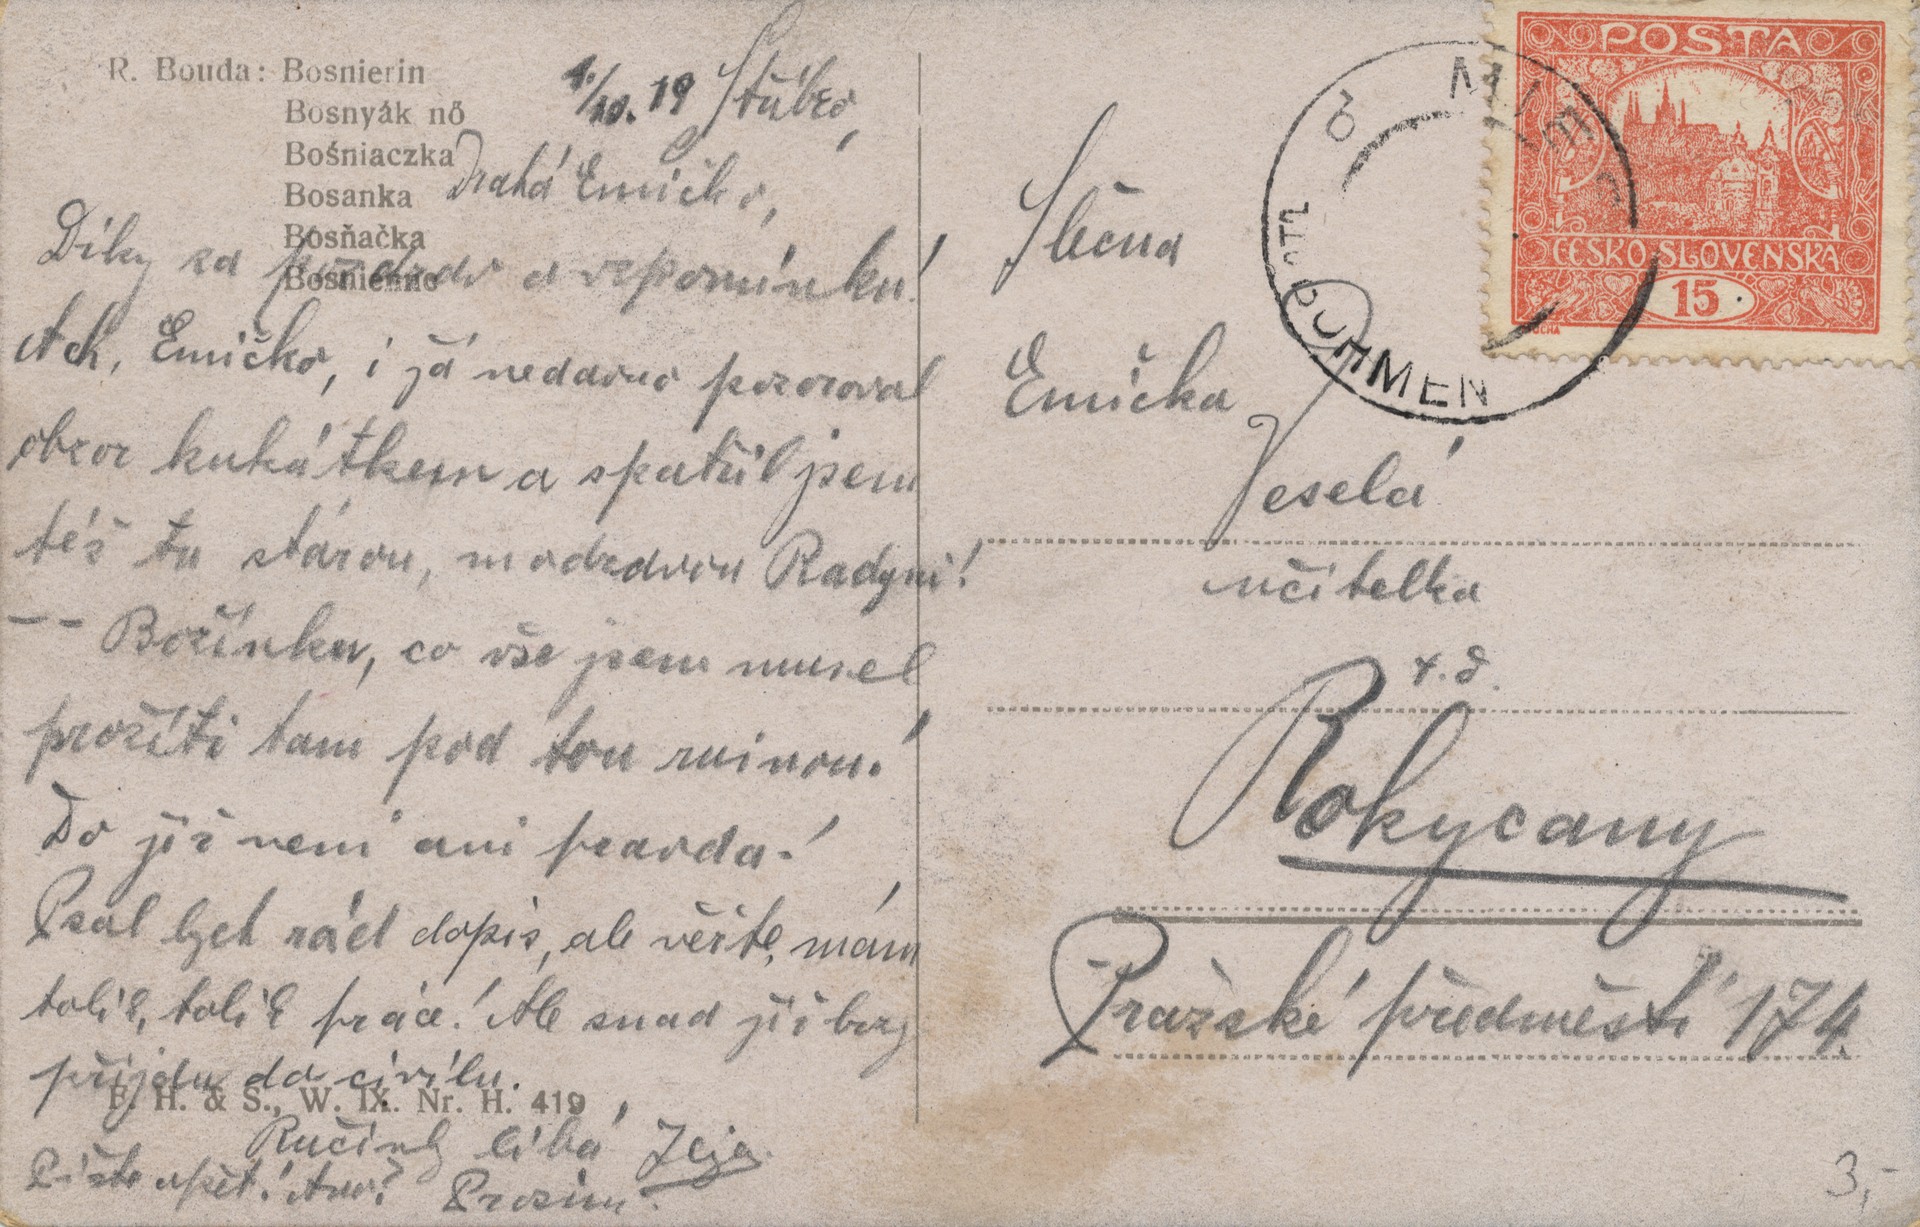 R. Bouda: Bosnierin
Bosnyák nő
Bośniaczka
Bosanka
Bosňačka
4./10. 19
Drahá Emičko,
Díky za pozdrav a vzpomínku!
Ach, Emičko, i já nedávno pozoroval
obzor kukátkem a spatřil jsem
též tu starou, modravou Radyni!
-- Božínku, co vše jsem musel
prožíti tam pod tou ruinou!
To již není ani pravda!
Psal bych rád dopis, ale věřte, mám
tolik, tolik práce! Ale snad již brzy
přijdu do civilu.
F. H. & S., W. IX. Nr. H. 419
Ručinky líbá
Pište opět! Ano? Prosím.
Slečna
Emička
Veselá
učitelka
Rokycany
Pražské předměstí 174.
POSTA
ČESKO-SLOVENSKÁ
15
MUCHA
MIES
BÖHMEN
3,-